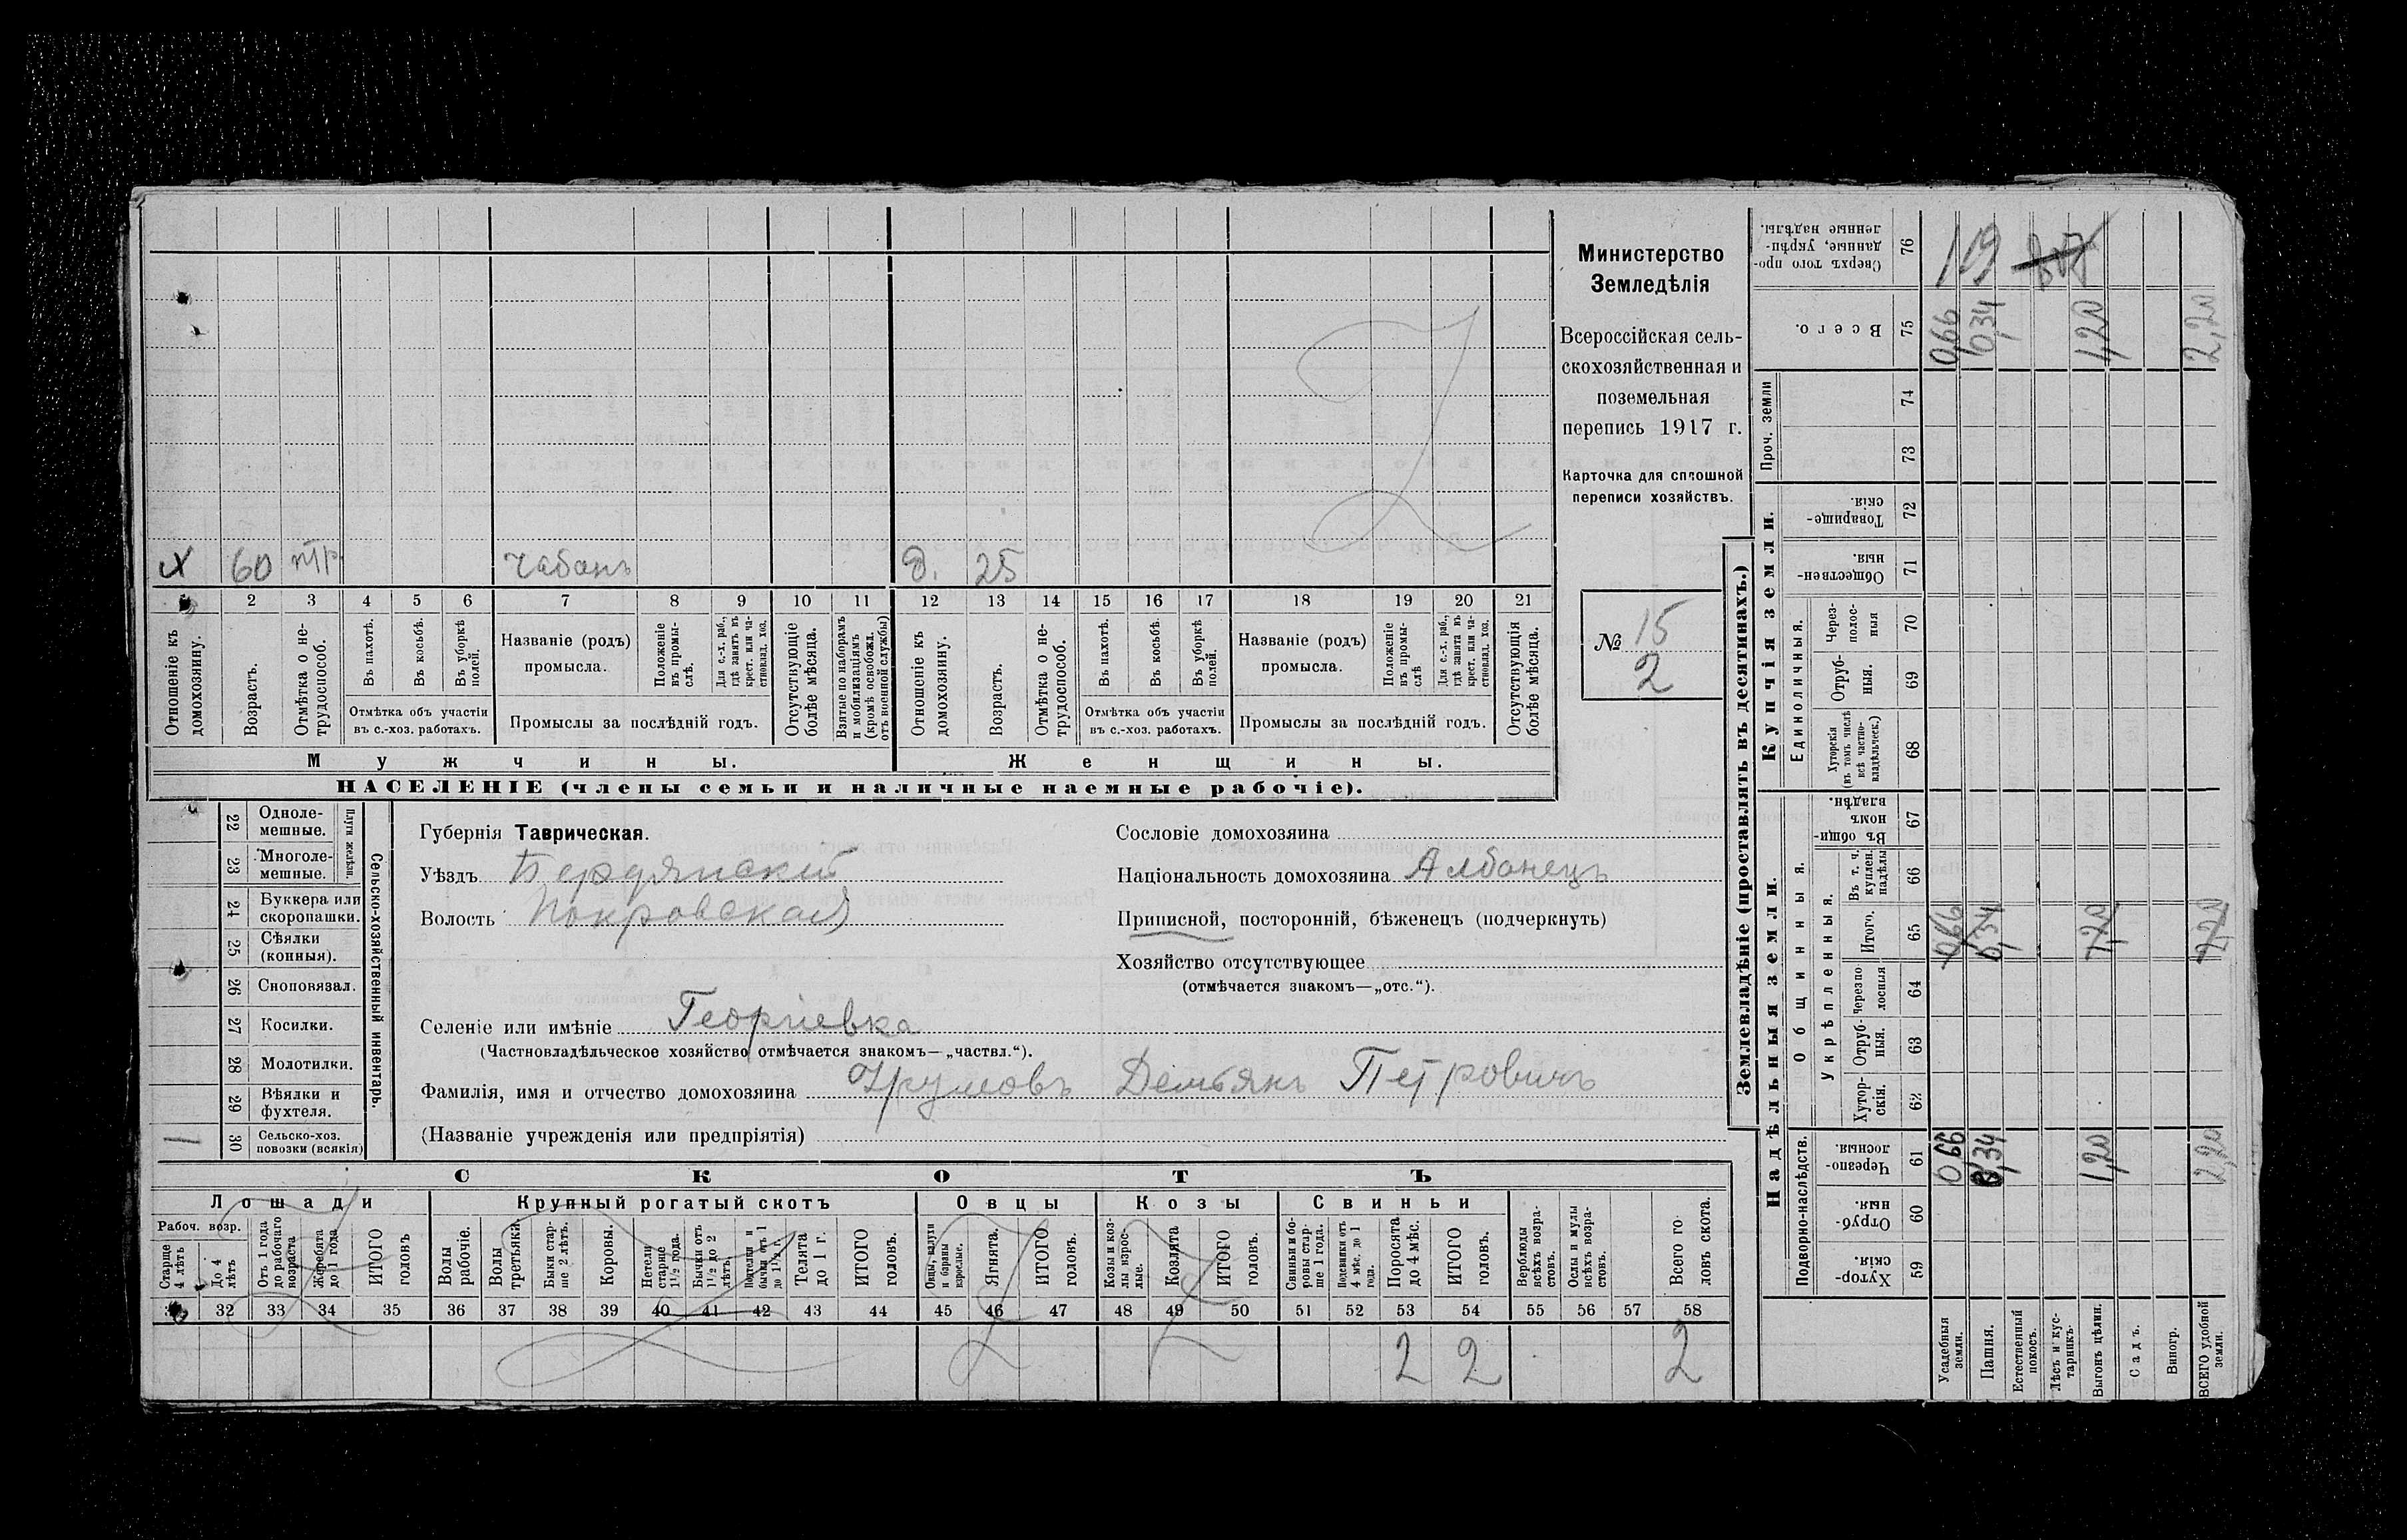 х 60 нтр чабанъ д. 25
1 2 3 4 5 6 7 8 9 10 11 12 13 14 15 16 17 18 19 20 21
Отношеніе къ домохозяину.
Возрастъ.
Отмѣтка о нетрудоспособ.
Въ пахотѣ.
Въ косьбѣ.
Въ уборкѣ полей.
Отмѣтка объ участіи
въ с.-хоз. работахъ.
Названіе (родъ)
промысла.
Положеніе въ промыслѣ.
Для с.-х. раб., гдѣ занятъ въ крест. или частновлад. хоз.
Промыслы за послѣдній годъ.
Отсутствующіе болѣе мѣсяца.
Взятые по наборамъ и мобилизаціямъ (кромѣ освобожд. отъ военной службы)
Отношеніе къ домохозяину.
Возрастъ.
Отмѣтка о нетрудоспособ.
Въ пахотѣ.
Въ косьбѣ.
Въ уборкѣ полей.
Отмѣтка объ участіи
въ с.-хоз. работахъ.
Названіе (родъ)
промысла.
Положеніе въ промыслѣ
Для с.-х. раб., гдѣ занята въ крест. или частновлад. хоз.
Промыслы за послѣдній годъ.
Отсутствующія болѣе мѣсяца.
Мужчины. Женщины.
НАСЕЛЕНІЕ (члены семьи и наличные наемные рабочіе).
Министерство
Земледѣлія
Всероссійская сель-
скохозяйственная и
поземельная
перепись 1917 г.
Карточка для сплошной
переписи хозяйствъ.
№ 15
2
22 Однолемешные.
23 Многолемешные.
Плуги желѣзн.
24 Буккера или скоропашки.
25 Сѣялки (конныя).
26 Сноповязал.
27 Косилки.
28 Молотилки.
29 Вѣялки и фухтеля.
1 30 Сельско-хоз. повозки (всякія)
Сельско-хозяйственный инвентарь.
Губернія Таврическая.
Уѣздъ Бердянский
Волость Покровская
Сословіе домохозяина
Національность домохозяина Албанецъ
Приписной, посторонній, бѣженецъ (подчеркнуть)
Хозяйство отсутствующее
(отмѣчается знакомъ—„отс.“).
Селеніе или имѣніе Георгіевка
(Частновладѣльческое хозяйство отмѣчается знакомъ—„частвл.“).
Фамилія, имя и отчество домохозяина Демьянъ Петровичъ
(Названіе учрежденія или предпріятія)
СКОТЪ
Лошади Крупный рогатый скотъ Овцы Козы Свиньи
Рабоч. возр.
Старше 4 лѣтъ
До 4 лѣтъ
Отъ 1 года до рабочаго возраста
Жеребята до 1 года
ИТОГО головъ
Волы рабочіе.
Волы третьяки.
Быки старше 2 лѣтъ.
Коровы.
Нетели старше 1½ года.
Бычки отъ 1½ до 2 лѣтъ.
Телята до 1 г.
ИТОГО головъ.
Овцы, валухи и бараны взрослые.
Ягнята.
ИТОГО головъ.
Козы и козлы взрослые.
Козлята
ИТОГО головъ.
Свиньи и боровы старше 1 года.
Подсвинки отъ 4 мѣс. до 1 года.
Поросята до 4 мѣс.
ИТОГО головъ.
Верблюды всѣхъ возрастовъ.
Ослы и мулы всѣхъ возрастовъ.
Всего головъ скота.
32 33 34 35 36 37 38 39 40 41 42 43 44 45 46 47 48 49 50 51 52 53 54 55 56 57 58
2 2 2
Землевладѣніе (проставлять въ десятинахъ.)
Надѣльныя земли. Купчія земли.
Проч. земли
Подворно-наслѣдств.
Общинныя.
Укрѣпленныя.
Единоличныя.
Сверхъ того проданные, укрѣпленные надѣлы. 76
Всего. 75 0,66 0,34 1,20 2,20
74
73
Товарищескія. 72
Общественныя. 71
Черезполосныя 70
Отрубныя. 69
Хуторскія (въ томъ числѣ всѣ частновладѣльческ.) 68
Въ общинномъ владѣн. 67
Въ т. ч. куплен. надѣлы 66
Итого. 65 0,66 0,34 1,20 2,20
Черезполосныя 64
Отрубныя. 63
Хуторскія. 62
Черезполосныя. 61 0,66 0,34 1,20 2,20
Отрубныя. 60
Хуторскія. 59
Усадебныя земли.
Пашня.
Естественный покосъ.
Лѣсъ и кустарникъ.
Выгонъ цѣлин.
Садъ.
Виногр.
ВСЕГО удобной земли.